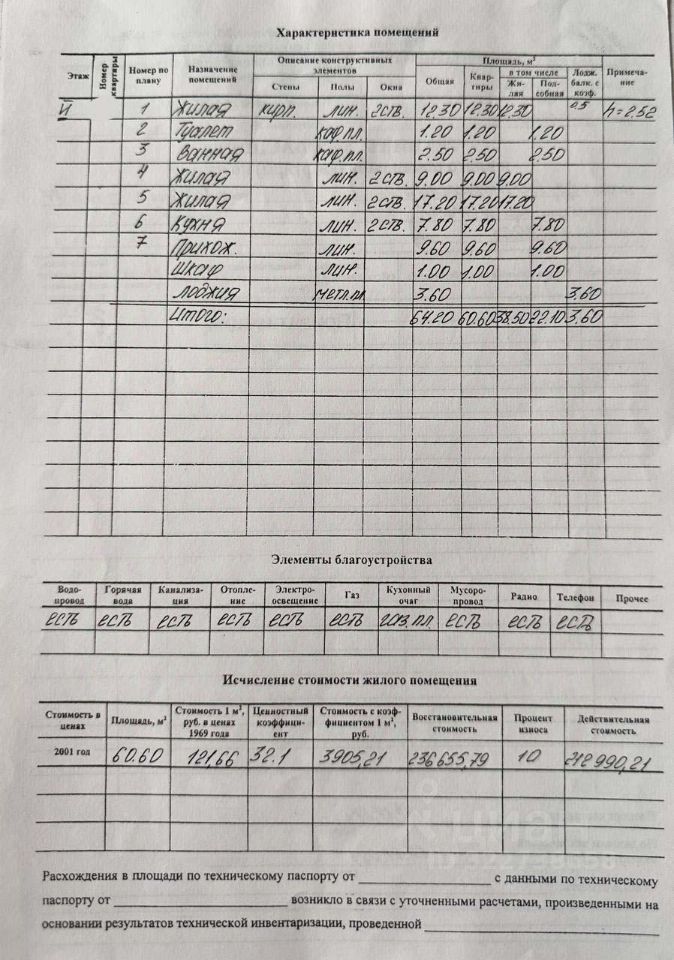 Характеристика помещений
Этаж | Номер квартиры | Номер по плану | Назначение помещений | Описание конструктивных элементов | Площадь, м² | Примеча-ние
Стены | Полы | Окна | Общая | Квар-тиры | в том числе | Лодж. балк. с коэф.
Жи-лая | Под-собная
1 | Жилая | кирп. | лин. | 2ств. | 12.30 | 12.30 | 12.30 | 0.5 | h=2.52
2 | Туалет | каф.пл. | 1.20 | 1.20 | 1.20
3 | Ванная | каф.пл. | 2.50 | 2.50 | 2.50
4 | Жилая | лин. | 2ств. | 9.00 | 9.00 | 9.00
5 | Жилая | лин. | 2ств. | 17.20 | 17.20 | 17.20
6 | Кухня | лин. | 2ств. | 7.80 | 7.80 | 7.80
7 | Прихож. | лин. | 9.60 | 9.60 | 9.60
Шкаф | лин. | 1.00 | 1.00 | 1.00
лоджия | метл.пл. | 3.60 | 3.60
Итого: | 64.20 | 60.60 | 38.50 | 22.10 | 3.60
Элементы благоустройства
Водо-провод | Горячая вода | Канализа-ция | Отопле-ние | Электро-освещение | Газ | Кухонный очаг | Мусоро-провод | Радио | Телефон | Прочее
есть | есть | есть | есть | есть | есть | газ.пл. | есть | есть | есть
Исчисление стоимости жилого помещения
Стоимость в ценах | Площадь, м² | Стоимость 1 м², руб. в ценах 1969 года | Ценностный коэффици-ент | Стоимость с коэф-фициентом 1 м², руб. | Восстановительная стоимость | Процент износа | Действительная стоимость
2001 год | 60.60 | 121,66 | 32.1 | 3905,21 | 236655,79 | 10 | 212990,21
Расхождения в площади по техническому паспорту от ____ с данными по техническому
паспорту от ____ возникло в связи с уточненными расчетами, произведенными на
основании результатов технической инвентаризации, проведенной ____